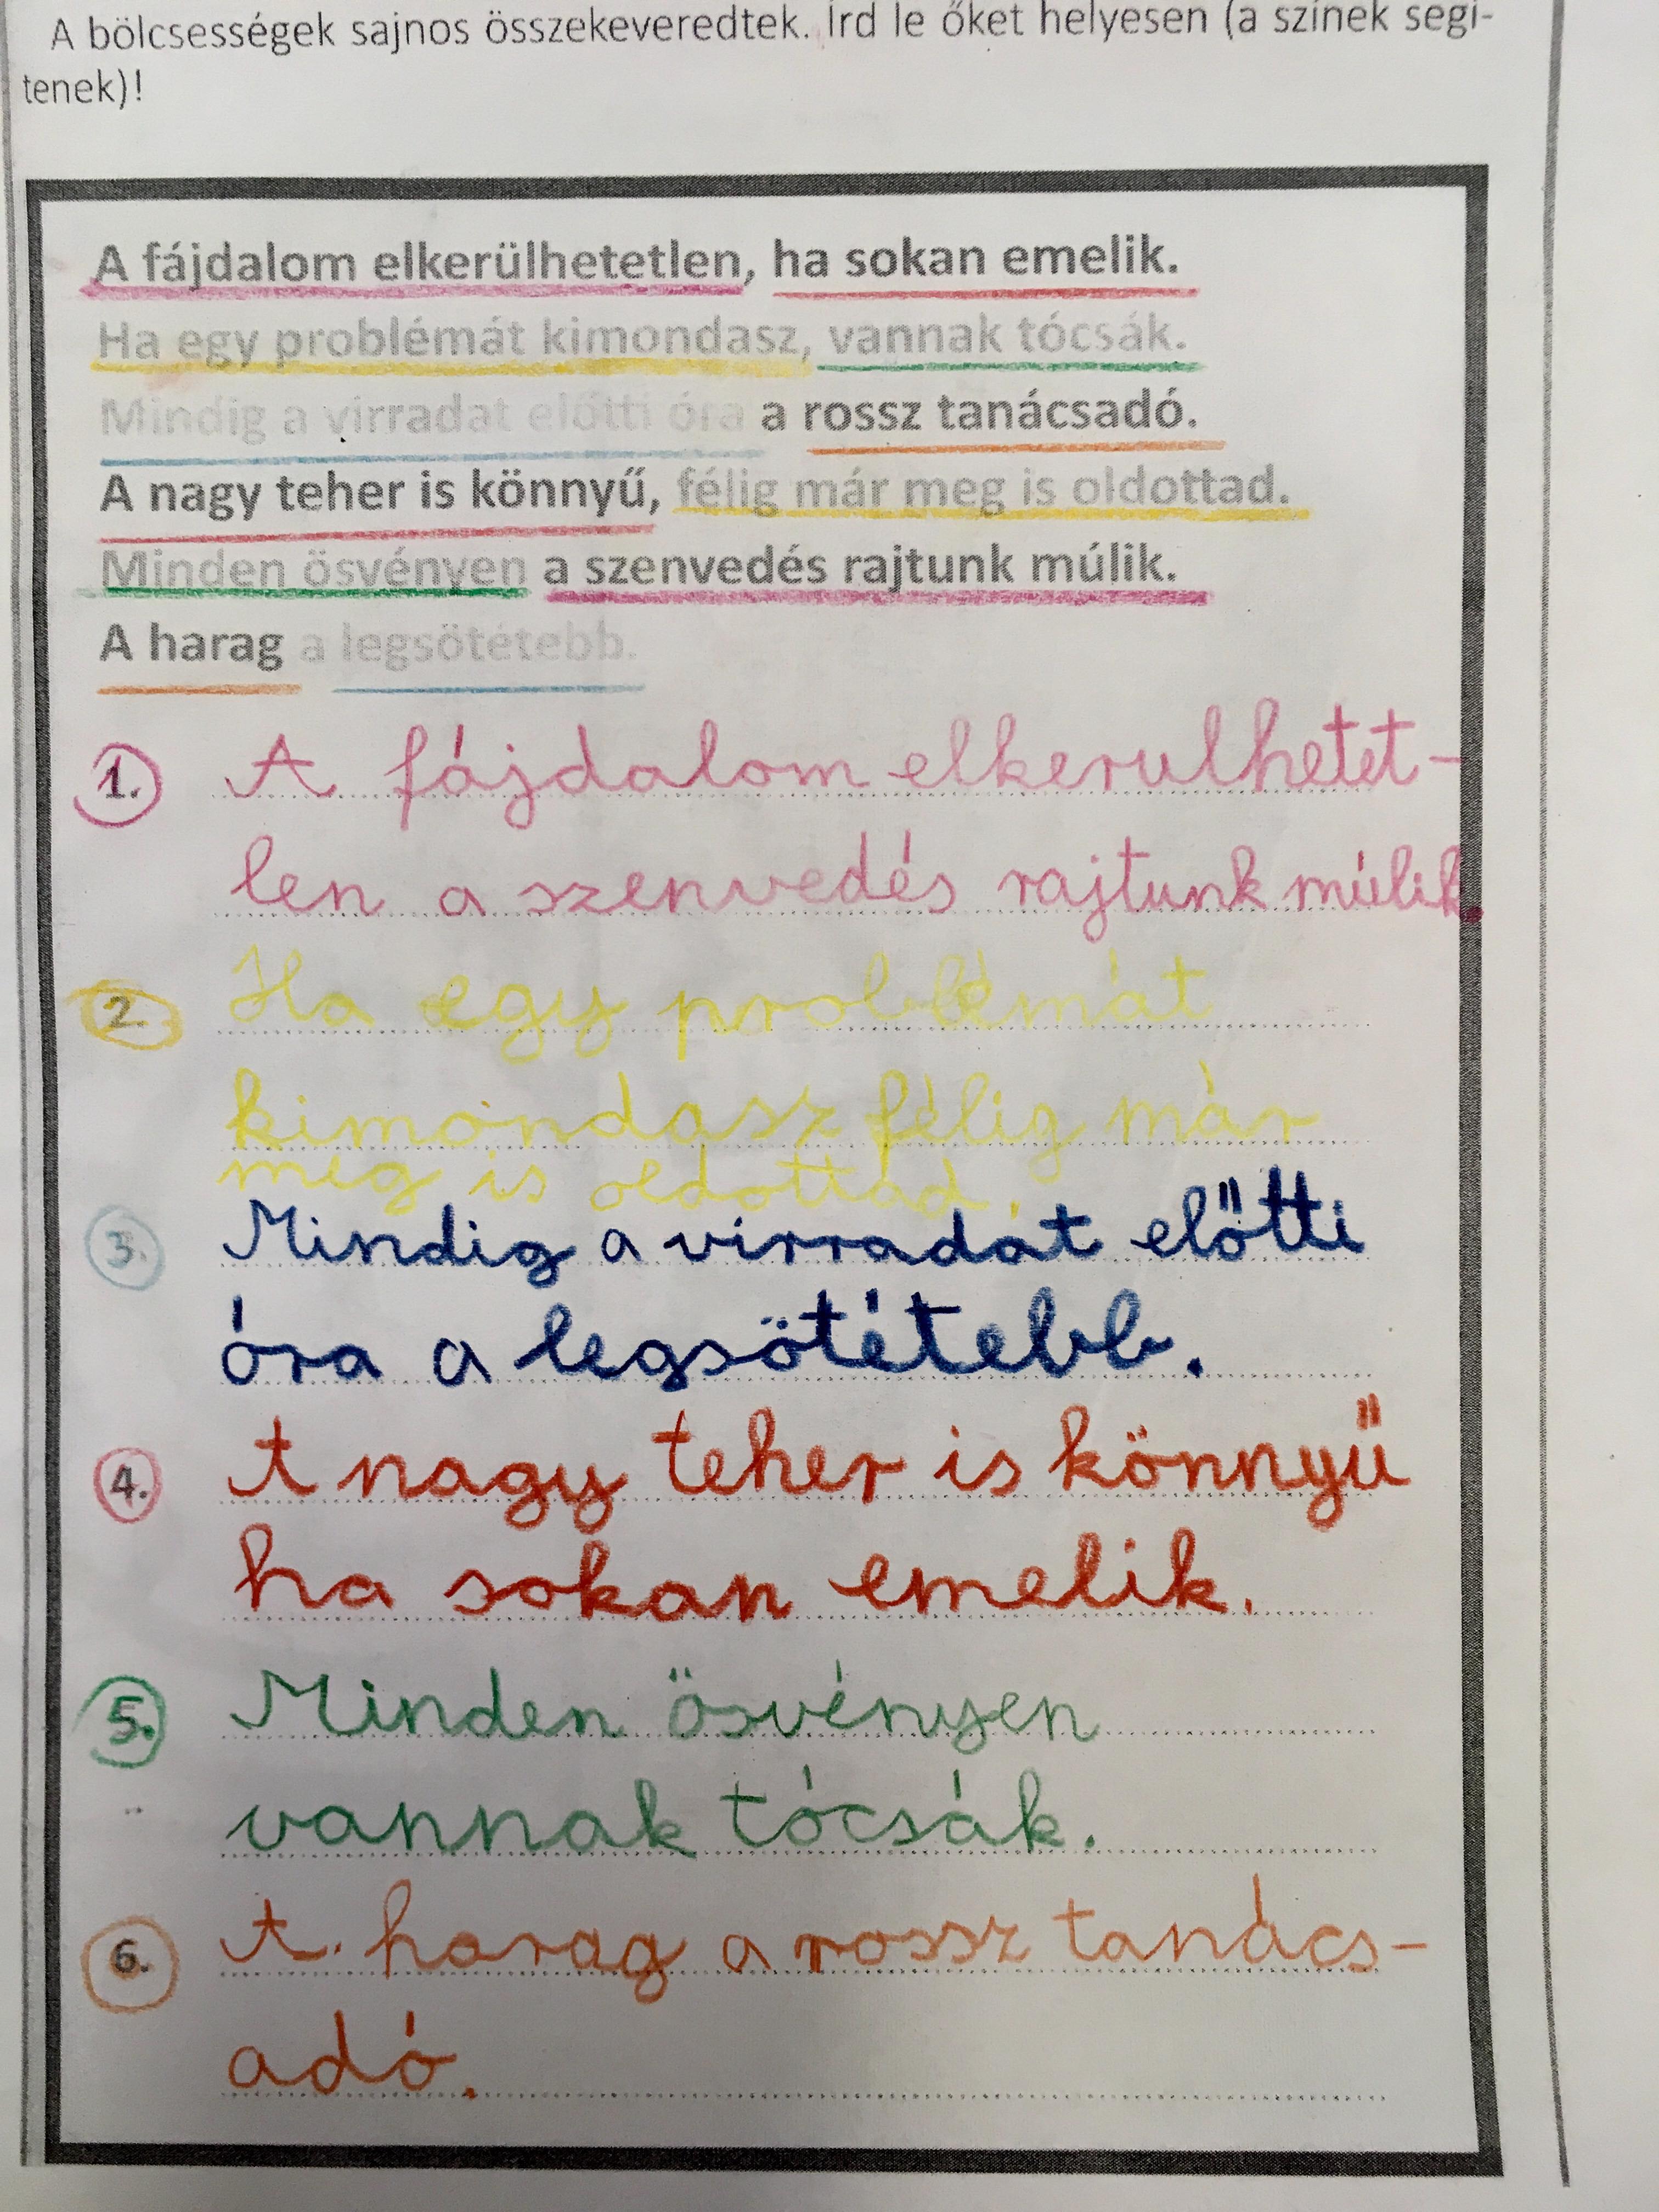 A bölcsességek sajnos összekeveredtek. Írd le őket helyesen (a színek segí-
tenek)!
A fájdalom elkerülhetetlen, ha sokan emelik.
Ha egy problémát kimondasz, vannak tócsák.
Mindig a virradat előtti óra a rossz tanácsadó.
A nagy teher is könnyű, félig már meg is oldottad.
Minden ösvényen a szenvedés rajtunk múlik.
A harag a legsötétebb.
1. A fájdalom elkerulhetet-
len a szenvedés rajtunk múlik.
2. Ha egy problémát
kimondasz félig már
meg is oldottad.
3. Mindig a virradat előtti
óra a legsötétebb.
4. A nagy teher is könnyű
ha sokan emelik.
5. Minden ösvényen
vannak tócsák.
6. A harag a rossz tanács-
adó.